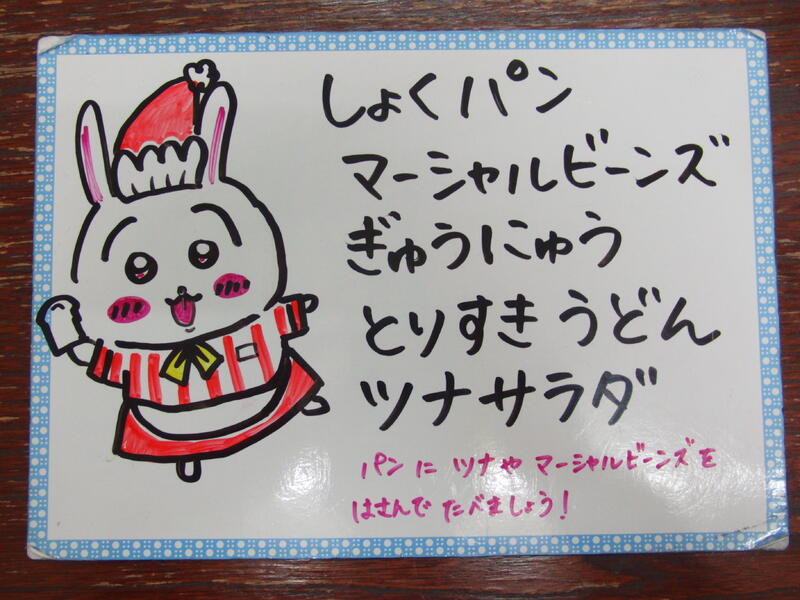 しょくパン
マーシャルビーンズ
ぎゅうにゅう
とりすきうどん
ツナサラダ
パンに ツナや マーシャルビーンズを
はさんで たべましょう!